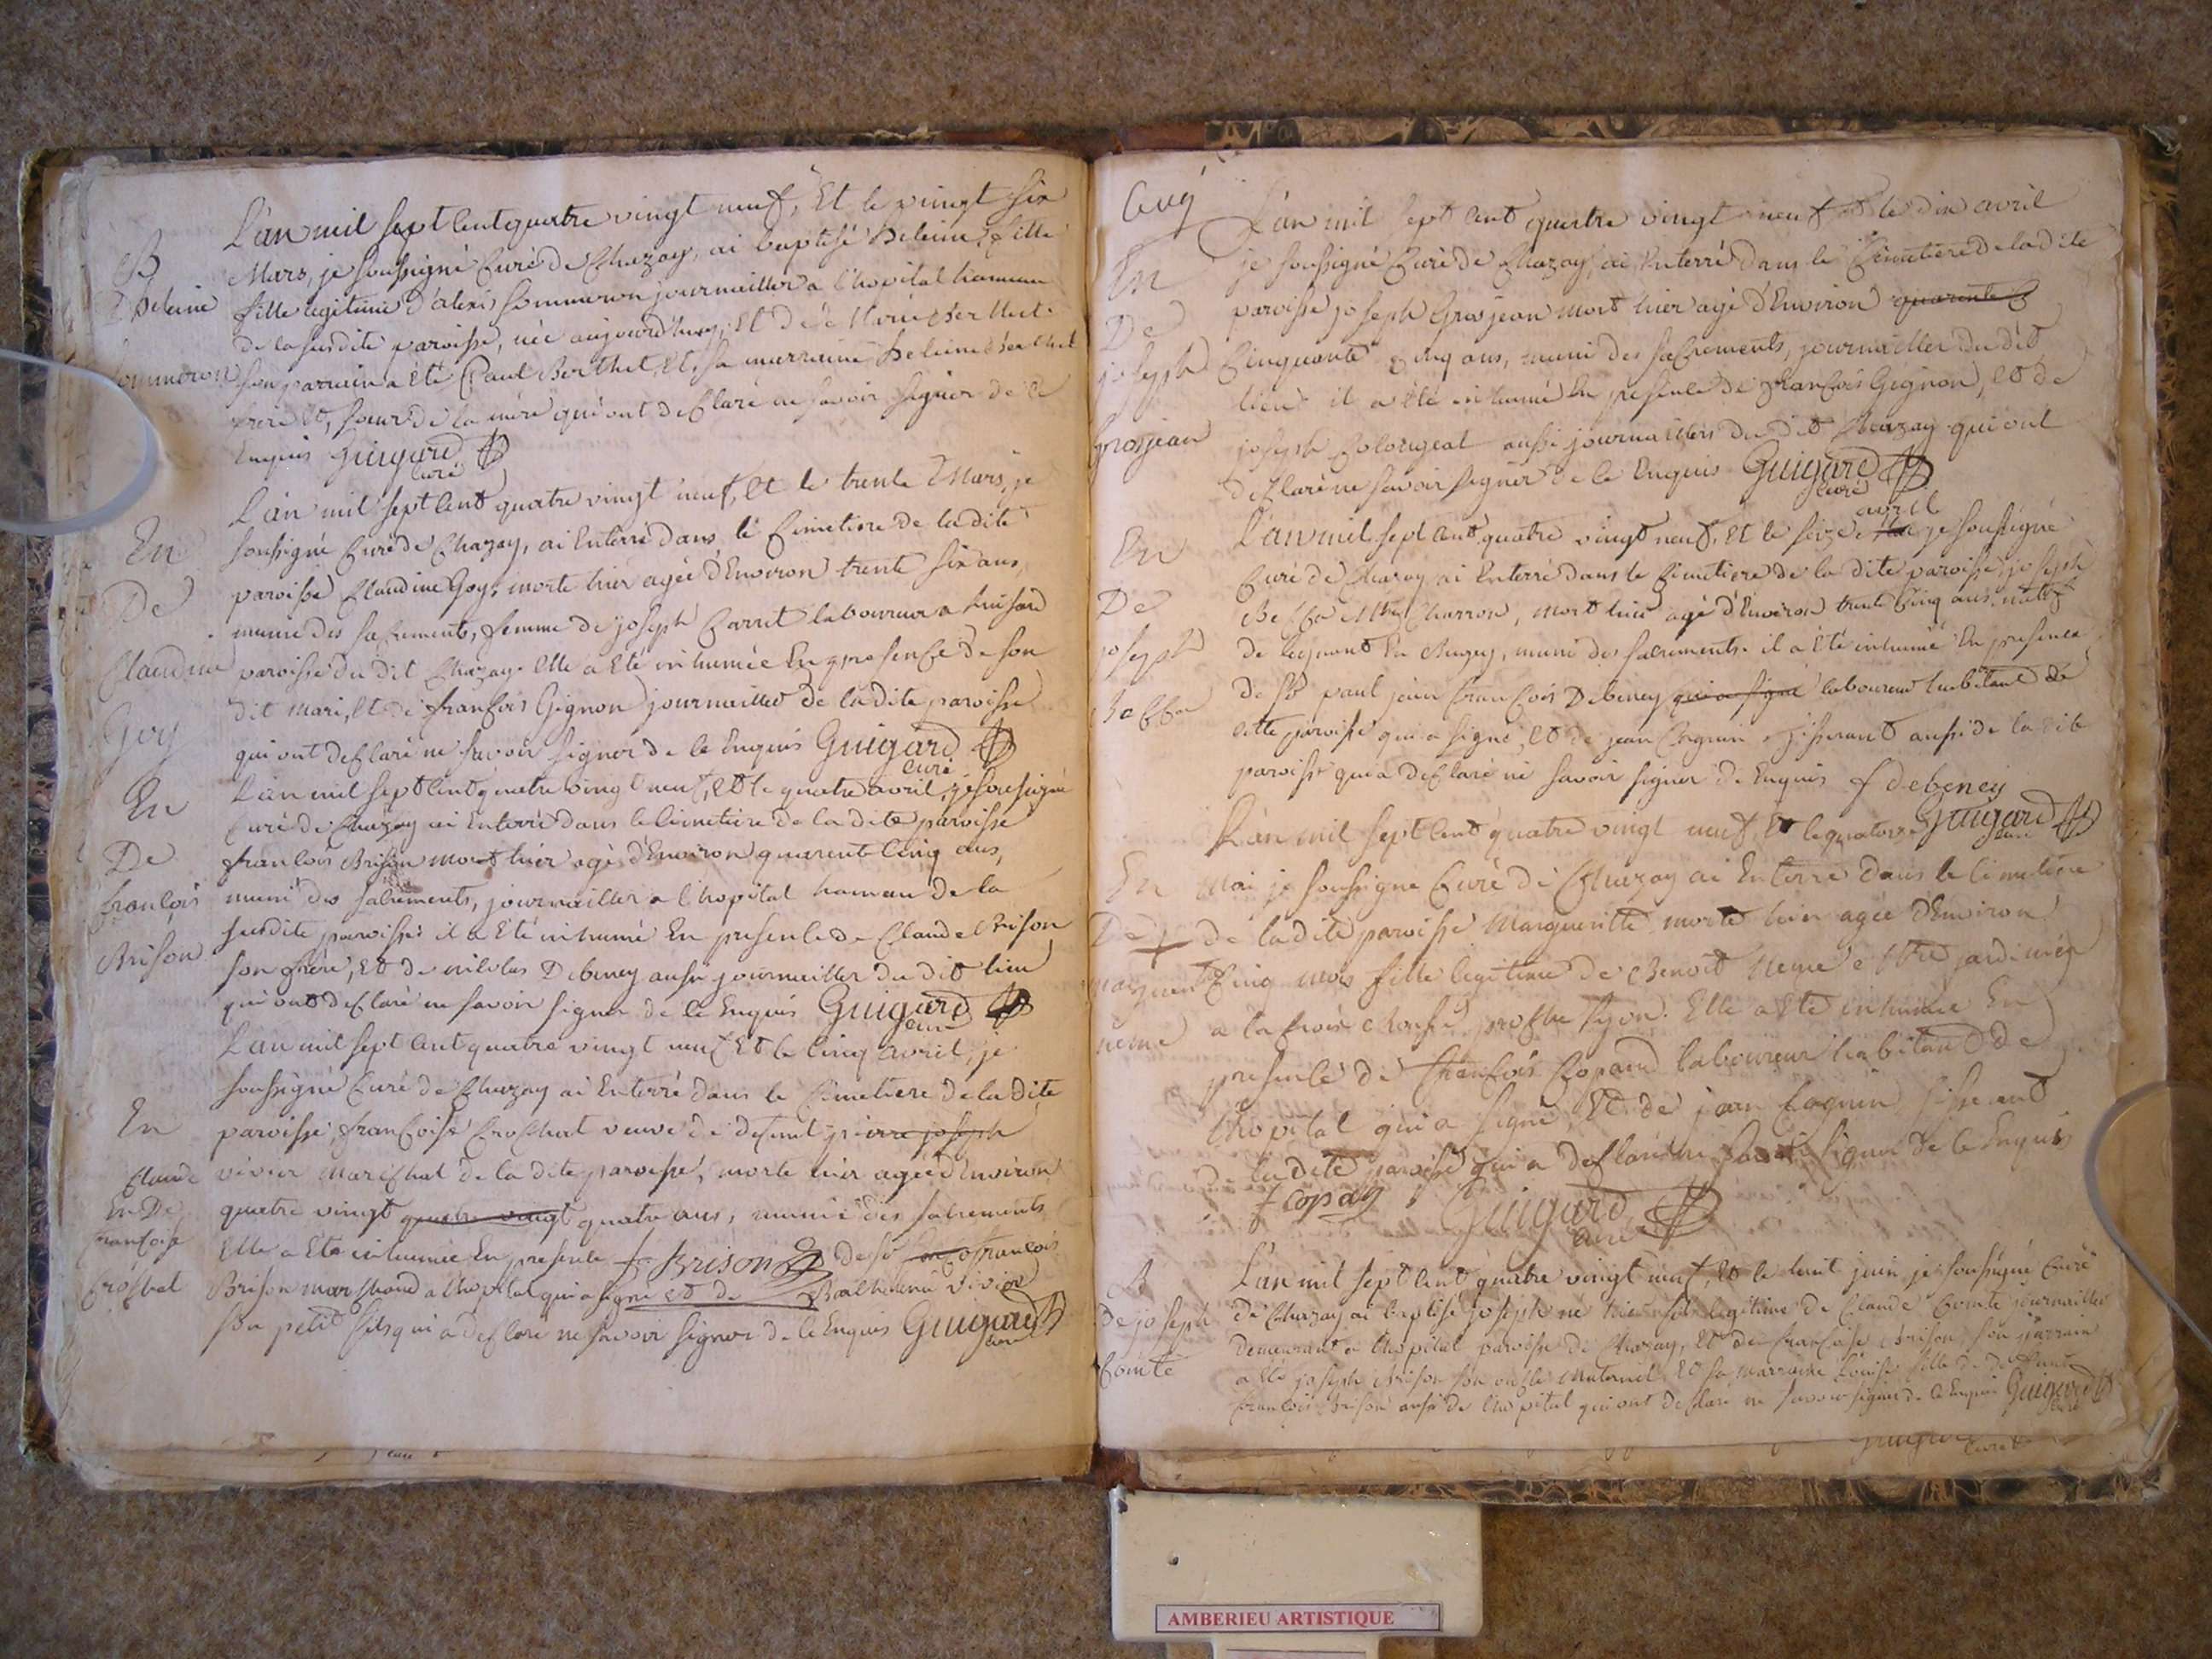 L'an mil sept cent quatre vingt neuf, Et le vingt six
Mars, je soussigné Curé de Chazay, ai baptisé heleine fille
fille legitime d'alexis Sommeron journaillier a l'hopital hameau
de la susdite paroisse, née aujourdhuy, Et de Marie Berthet.
son parrain a Eté Paul Berthet, Et sa marraine heleine Berthet
frere Et soeur de la mere qui ont declaré ne savoir signer de ce
Enquis Guigard
Curé
B
heleine
Sommeron
L'an mil sept cent quatre vingt neuf, Et le trente Mars, je
soussigné Curé de Chazay, ai Enterré dans le Cimetiere de la dite
paroisse Claudine Goy, morte hier agée d'Environ trente six ans,
munie des sacrements, femme de joseph Carret laboureur a
paroisse du dit Chazay. Elle a Eté inhumée En presence de son
dit mari, Et de françois Gignon journaillier de la dite paroisse
qui ont declaré ne savoir signer de ce Enquis Guigard
Curé
En
De
Claudine
Goy
L'an mil sept cent quatre vingt neuf, Et le quatre avril, je soussigné
Curé de Chazay ai Enterré dans le Cimetiere de la dite paroisse
françois Brison mort hier agé d'Environ quarente Cinq ans,
muni des sacrements, journaillier a l'hopital hameau de la
susdite paroisse il a Eté inhumé En presence de Claude Brison
son frere, Et de nicolas Debeney aussi journaillier du dit lieu
qui ont declaré ne savoir signer de ce Enquis Guigard
Curé
En
De
françois
Brison
L'an mil sept cent quatre vingt neuf Et le Cinq avril, je
soussigné Curé de Chazay ai Enterré dans le Cimetiere de la dite
paroisse, françoise Crochat veuve de defunt pierre joseph
vivier marechal de la dite paroisse, morte hier agée d'Environ
quatre vingt quatre vingt quatre ans, munie des sacrements
Elle a Eté inhumée En presence f Brison de sr françois
Brison marchand a l'hopital qui a signé et de vivier
son petit fils qui a declaré ne savoir signer de ce Enquis Guigard
Curé
En
Claude
En De
françoise
Crochat
L'an mil sept cent quatre vingt neuf et le dix avril
je soussigné Curé de Chazay, ai Enterré dans le Cimetiere de la dite
paroisse joseph Grosjean mort hier agé d'Environ quarente
Cinquante Cinq ans, muni des sacrements, journaillier du dit
lieu il a Eté inhumé En presence de françois Gignon, et de
joseph aussi journailliers du dit Chazay qui ont
declaré ne savoir signer de ce Enquis Guigard
Curé
En
De
joseph
Grosjean
avril
L'an mil sept cent quatre vingt neuf, Et le seize je soussigné
Curé de Chazay ai Enterré dans le Cimetiere de la dite paroisse joseph
Charron, mort hier agé d'Environ trente Cinq ans, natif
de Lagnieu En Bugey, muni des sacrements. il a Eté inhumé En presence
de Sr paul jean françois Debeney qui a signé laboureur habitant de
cette paroisse qui a signé, Et de jean Cagnin tisserant aussi de la dite
paroisse qui a declaré ne savoir signer de Enquis f debeney
Guigard
Curé
En
De
joseph
L'an mil sept cent quatre vingt neuf, Et le quatorze
Mai je soussigné Curé de Chazay ai Enterré dans le Cimetiere
de la dite paroisse Margueritte morte hier agée d'Environ
Cinq mois fille legitime de Benoit Neme Mtre jardinier
a la Croix Rousse proche Lyon. Elle a Eté inhumée En
presence de françois Copard laboureur habitant de
l'hopital qui a signé, Et de jean Cagnin tisserant
de la dite paroisse qui a declaré ne savoir signer de ce Enquis
f Guigard
Curé
En
De
neme
L'an mil sept cent quatre vingt neuf, Et le huit juin je soussigné Curé
de Chazay ai baptisé joseph né hier fils legitime de Claude Comte journaillier
demeurant a l'hopital paroisse de Chazay, et de françoise Brison son parrain
a Eté joseph Brison son oncle maternel, Et sa marraine Louise fille de defunt
françois Brison aussi de l'hopital qui ont declaré ne savoir signer de ce Enquis Guigard
Curé
B
De joseph
Comte
AMBERIEU ARTISTIQUE